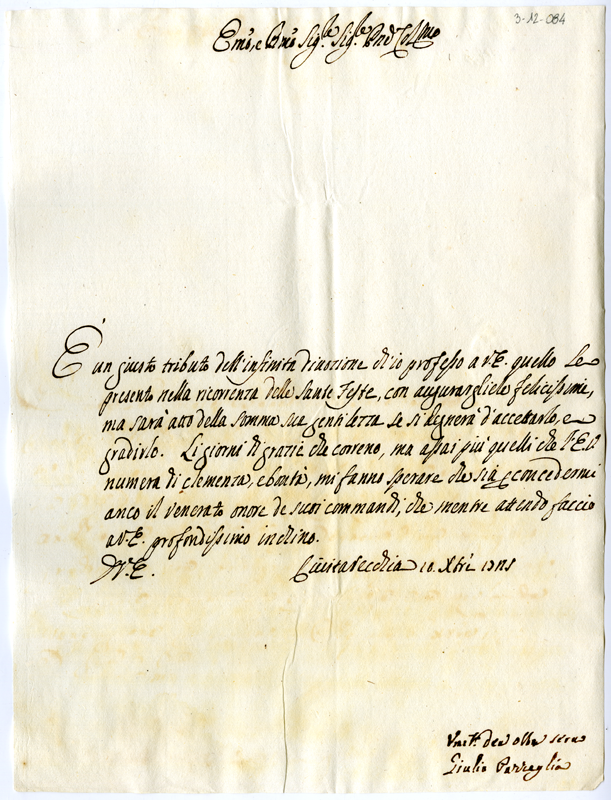 3-12-084
Emo, e Rmo Sigre Sigre Pne Colmo
È un giusto tributo dell'infinita divozione ch'io professo a V.E. quello Le
presento nella ricorrenza delle Sante Feste, con augurargliele felicissime,
ma sarà atto della somma sua gentilezza se si degnerà d'accettarlo, e
gradirlo. Li giorni di grazie che correno, ma assai più quelli che V.E.
numera di clemenza, e bontà, mi fanno sperare che sia concedermi
anco il venerato onore de suoi commandi, che mentre attendo faccio
a V.E. profondissimo inchino.
D.V.E. Civitavecchia 10. Xbre
Umo deo obbo servo
Giulio Pazzaglia